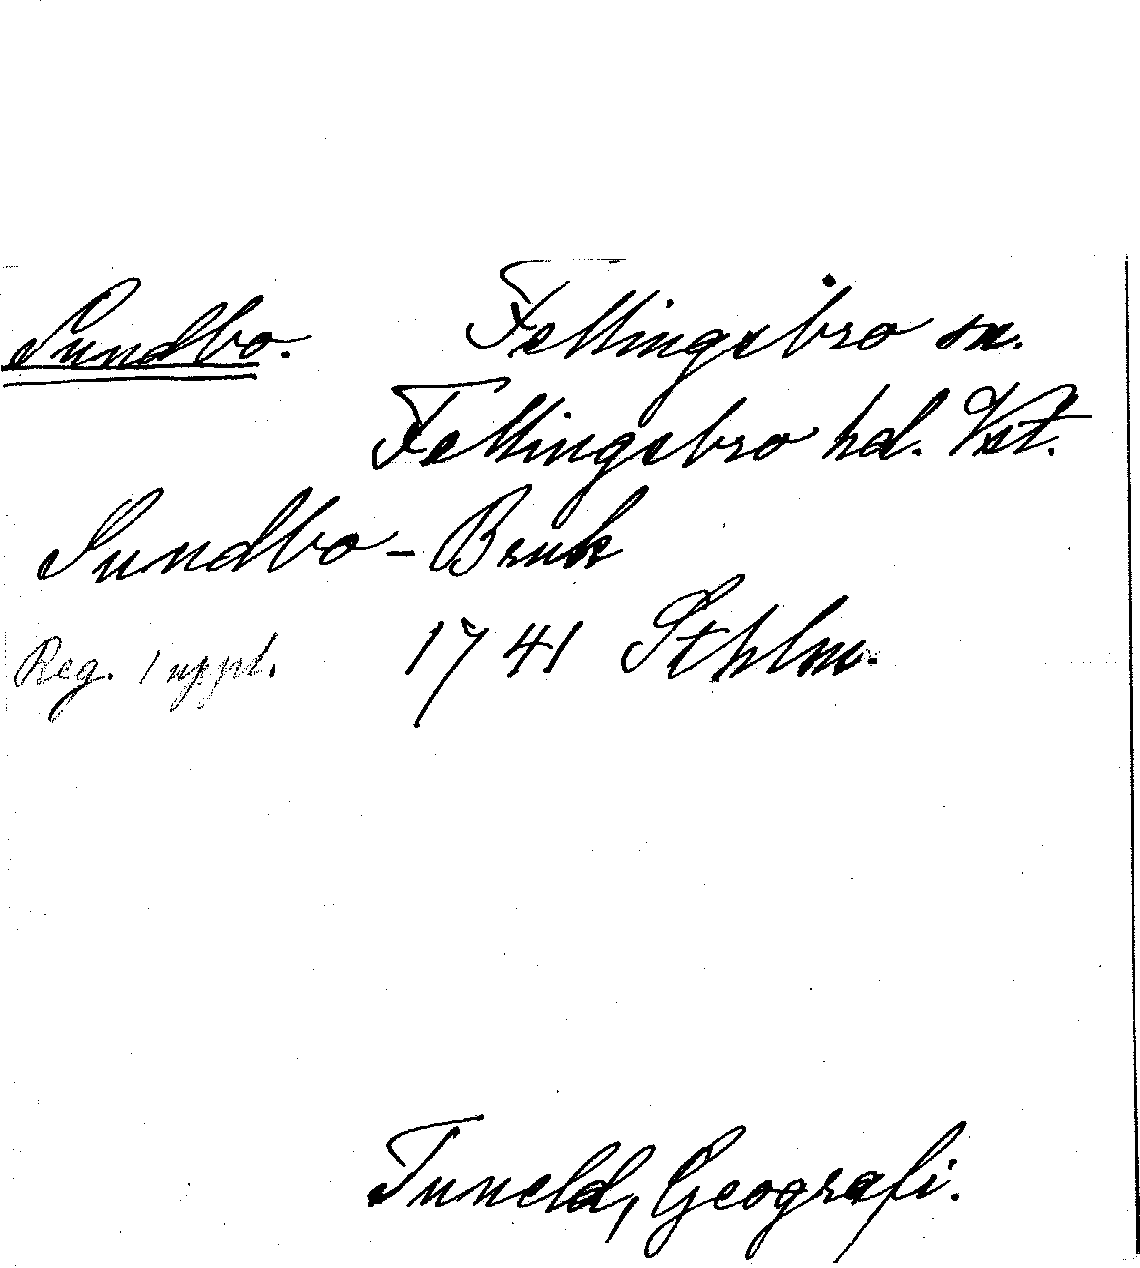 Sundbo. Fellingsbro sn.
Fellingsbro hd. Vst.
Sundbo-Bruk
Reg. 1 uppl. 1741 Sthlm.
Tuneld, Geografi.